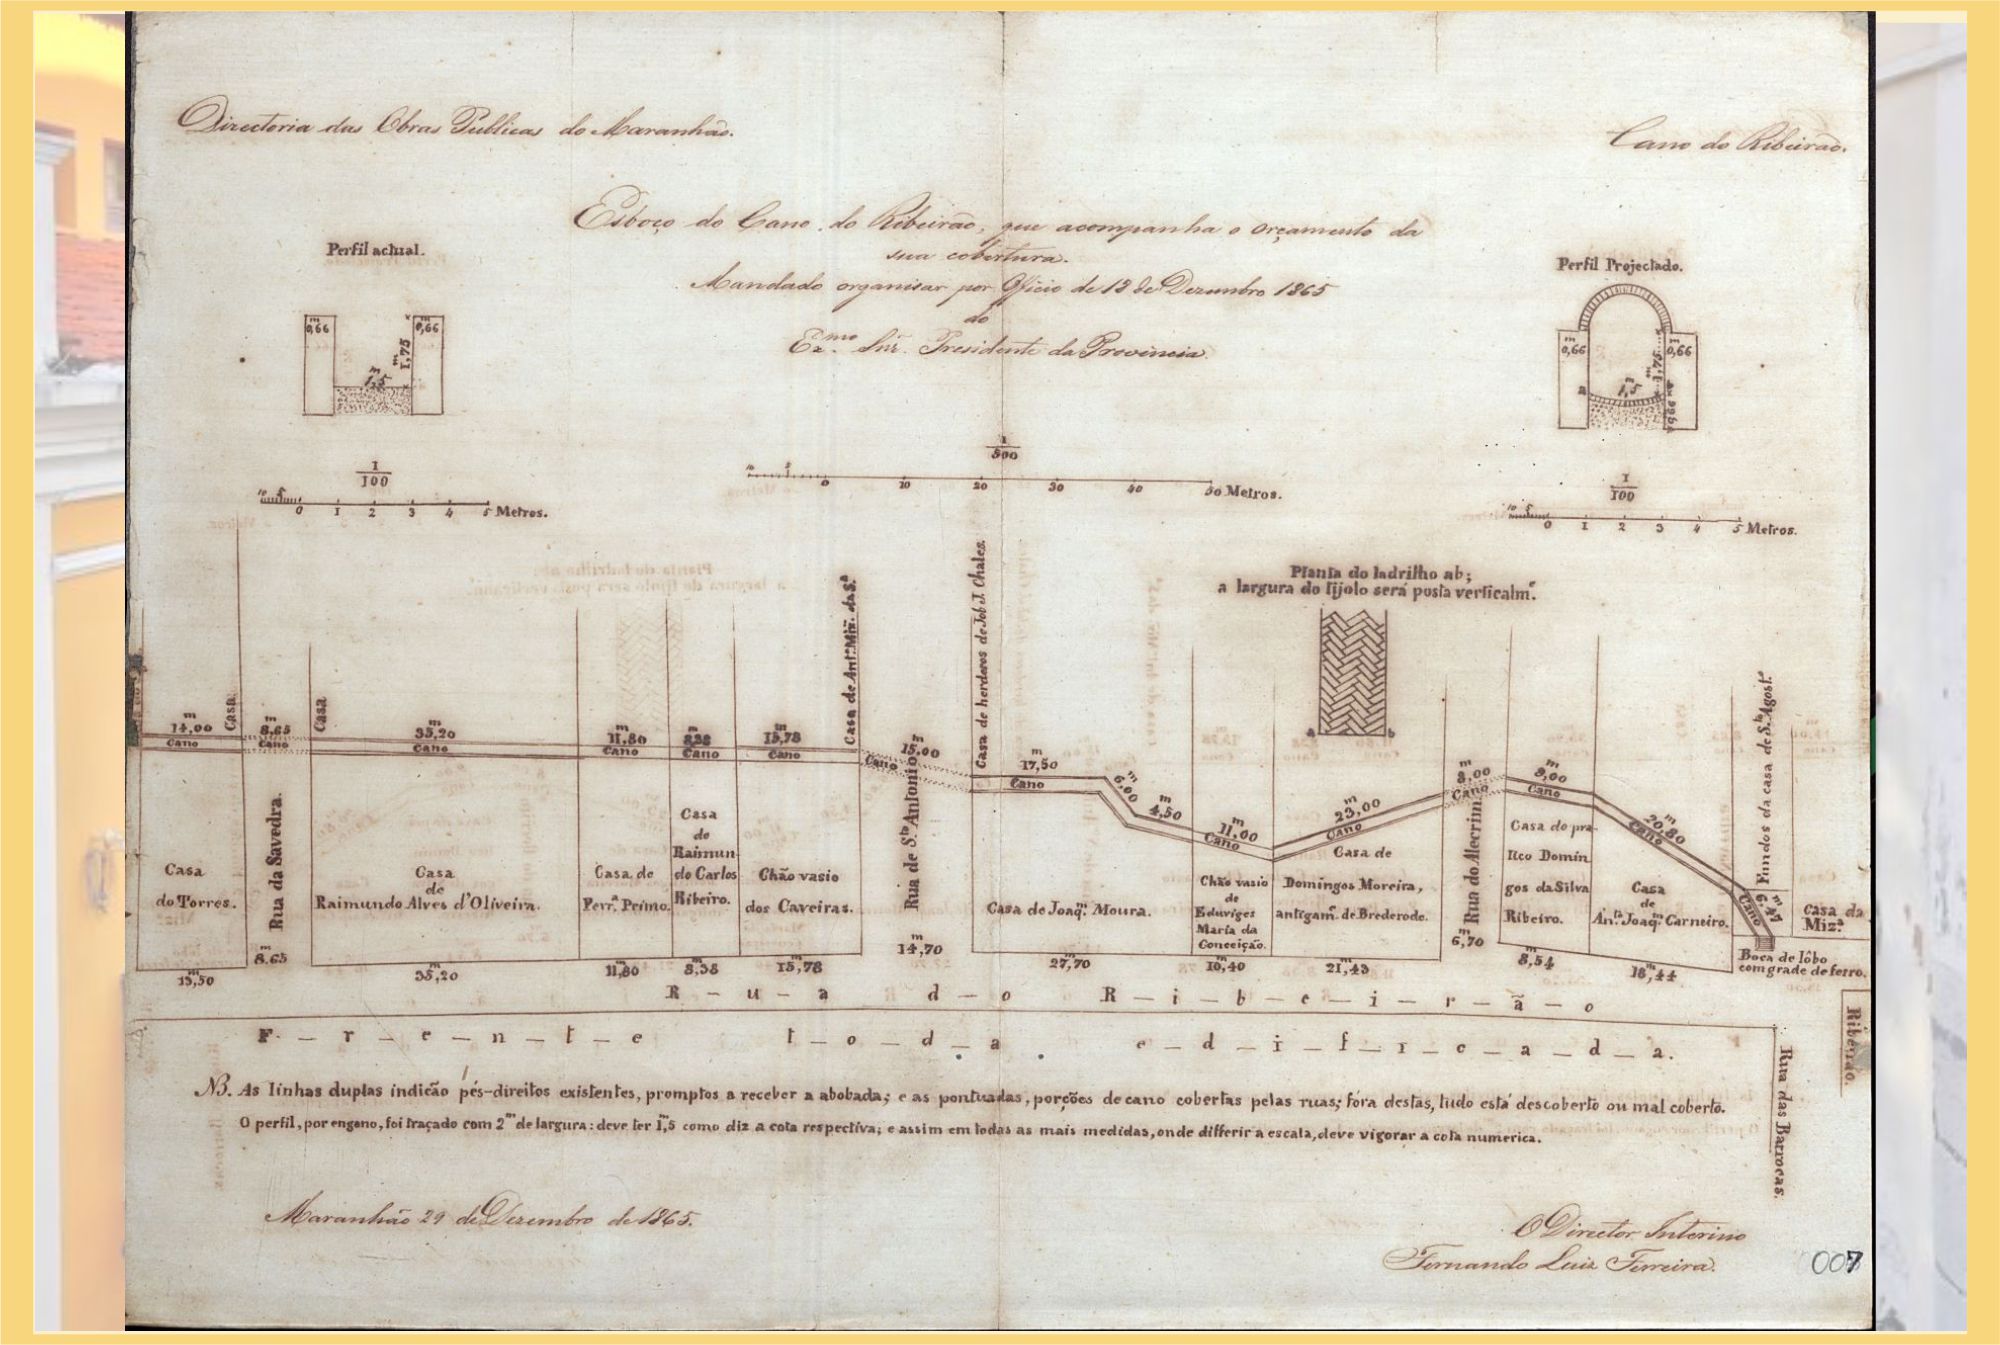 Directoria das Obras Publicas do Maranhão.
Cano do Ribeirão.
Esboço do Cano do Ribeirão, que acompanha o orçamento da
sua cobertura.
Mandado organisar por Officio de 18 de Dezembro 1865
do
Ex.mo Snr. Presidente da Provincia.
Perfil actual.
m 0,66
m 0,66
m 1,75
m 1,5
1
100
10 5 0 1 2 3 4 5 Metros.
1
500
10 5 0 10 20 30 40 50 Metros.
Perfil Projectado.
m 0,66
m 0,66
m 1,75
m 1,5
a
0,66
1
100
10 5 0 1 2 3 4 5 Metros.
Planta do ladrilho ab;
a largura do tijolo será posta verticalm.e
a b
m 14,00
Cano
Casa
m 8,65
Cano
Casa
m 35,20
Cano
m 11,80
Cano
m 8,38
Cano
m 15,78
Cano
Casa de Ant.o Miz. da S.a
m 15,00
Cano
Casa de herderos de Job J. Chales.
m 17,50
Cano
m 6,00
m 4,50
m 11,00
Cano
m 23,00
Cano
m 8,00
Cano
m 9,00
Cano
m 20,80
Cano
Fundos da casa de S.to Agost.o
Cano
Casa
do Torres.
Rua da Savedra.
Casa
de
Raimundo Alves d'Oliveira.
Casa de
Ferr.a Primo.
Casa
de
Raimun-
do Carlos
Ribeiro.
Chão vasio
dos Caveiras.
Rua de S.to Antonio
Casa de Joaq.m Moura.
Chão vasio
de
Eduviges
Maria da
Conceição.
Casa de
Domingos Moreira,
antigam.e de Brederode.
Rua do Alecrim.
Casa do pra-
tico Domin
gos da Silva
Ribeiro.
Casa
de
An.to Joaq.m Carneiro.
Casa da
Miz.a
Boca de lôbo
com grade de ferro.
m 13,50
m 8,65
m 35,20
m 11,80
m 8,38
m 15,78
m 14,70
m 27,70
m 10,40
m 21,43
m 6,70
m 8,54
m 18,44
R-u-a d-o R-i-b-e-i-r-ã-o
F-r-e-n-t-e t-o-d-a e-d-i-f-i-c-a-d-a.
Ribeirão.
Rua das Barrocas.
NB. As linhas duplas indicão pés-direitos existentes, promptos a receber a abobada; e as pontuadas, porções de cano cobertas pelas ruas; fóra destas, tudo está descoberto ou mal coberto.
O perfil, por engano, foi traçado com 2m de largura: deve ter 1,m5 como diz a cota respectiva; e assim em todas as mais medidas, onde differir a escala, deve vigorar a cota numerica.
Maranhão 29 de Dezembro de 1865.
O Director Interino
Fernando Luiz Ferreira.
007